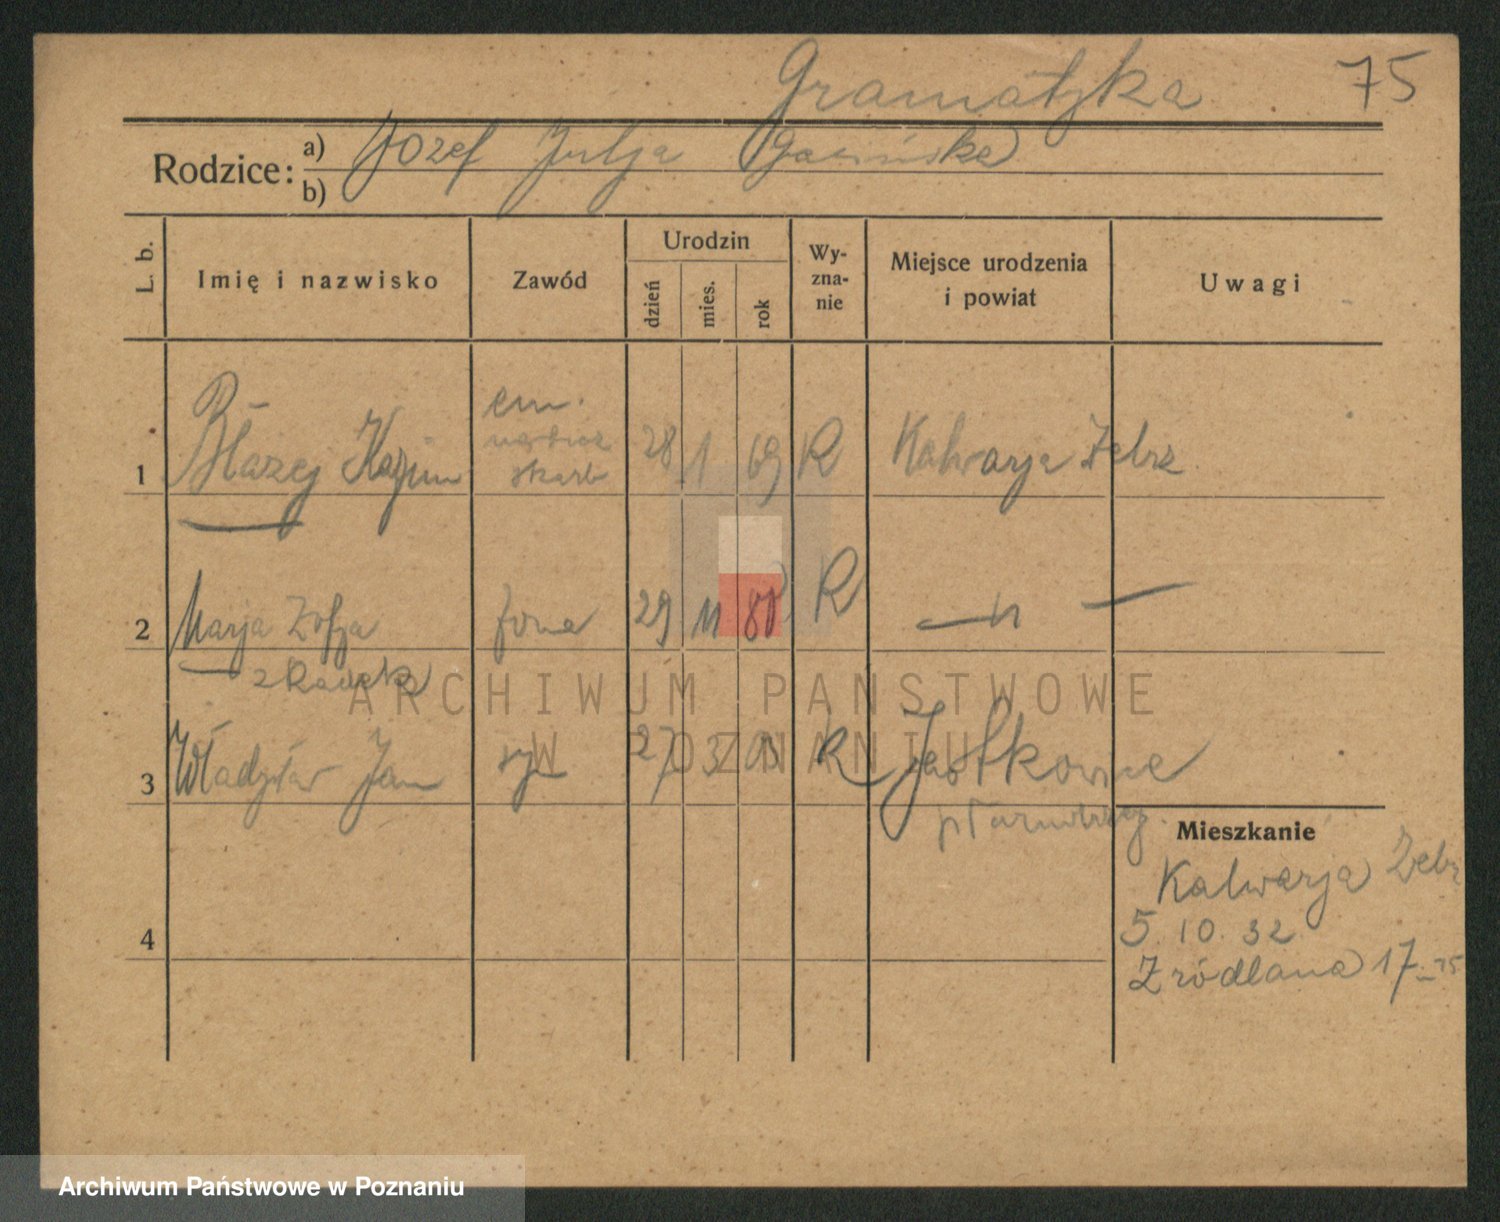 Gramatyka 75
Rodzice: a) Józef Julja
b)
L. b.
Imię i nazwisko
Zawód
Urodzin
dzień
mies.
rok
Wy-
zna-
nie
Miejsce urodzenia
i powiat
Uwagi
em.
skarb
1 Błażej Kazim 28 1 69 R Kalwarja Zebrz
2 Marja Zofja żona 29 11 R — " —
z
ARCHIWUM PAŃSTWOWE
W POZNANIU
3 Władysław Jan syn 27 3 03 R
Mieszkanie
Kalwarja Zebr
4
5. 10. 32
Źródlana 17
Archiwum Państwowe w Poznaniu